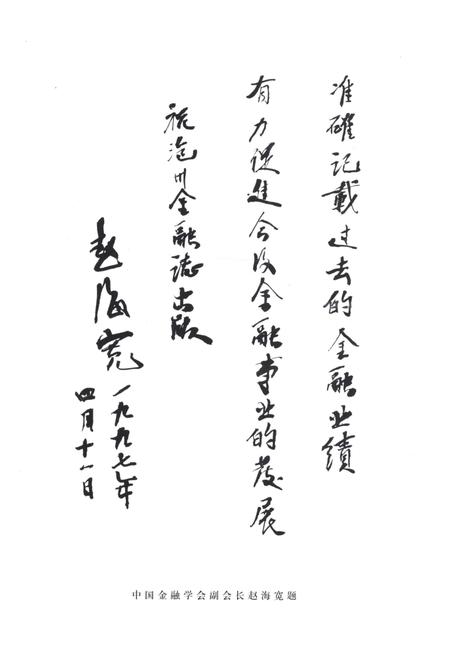 准確记載过去的金融业績
有力促進今后金融事业的发展
祝沧州金融誌出版
赵海宽
一九九七年
四月十一日
中国金融学会副会长赵海宽题